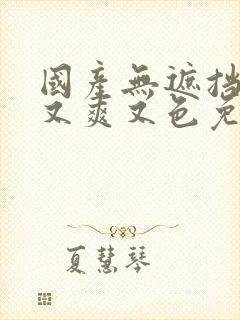 國產無遮挡
又爽又色免
夏慧琴